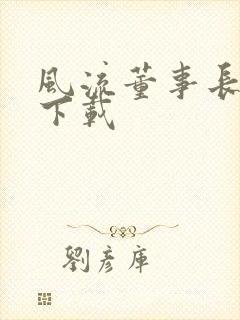 風流董事長
下載
劉彥庫